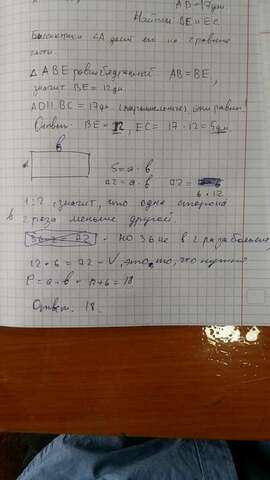 AD = 17дм.
Найти BE и EC
Биссектриса делит его на 2 равные
части
△ ABE равнобедренный AB = BE,
значит BE = 12дм
AD || BC = 17дм (параллельные), они равны
Ответ: BE = 12, EC = 17 - 12 = 5дм
в
S = a · в
72 = a · в 72 =
6 · 12
1:2, значит, что одна сторона
в 2 раза меньше другой.
но 36 не в 2 раза больше
12 · 6 = 72 - V, это то, что нужно
P = a + в = 12 + 6 = 18
Ответ: 18.